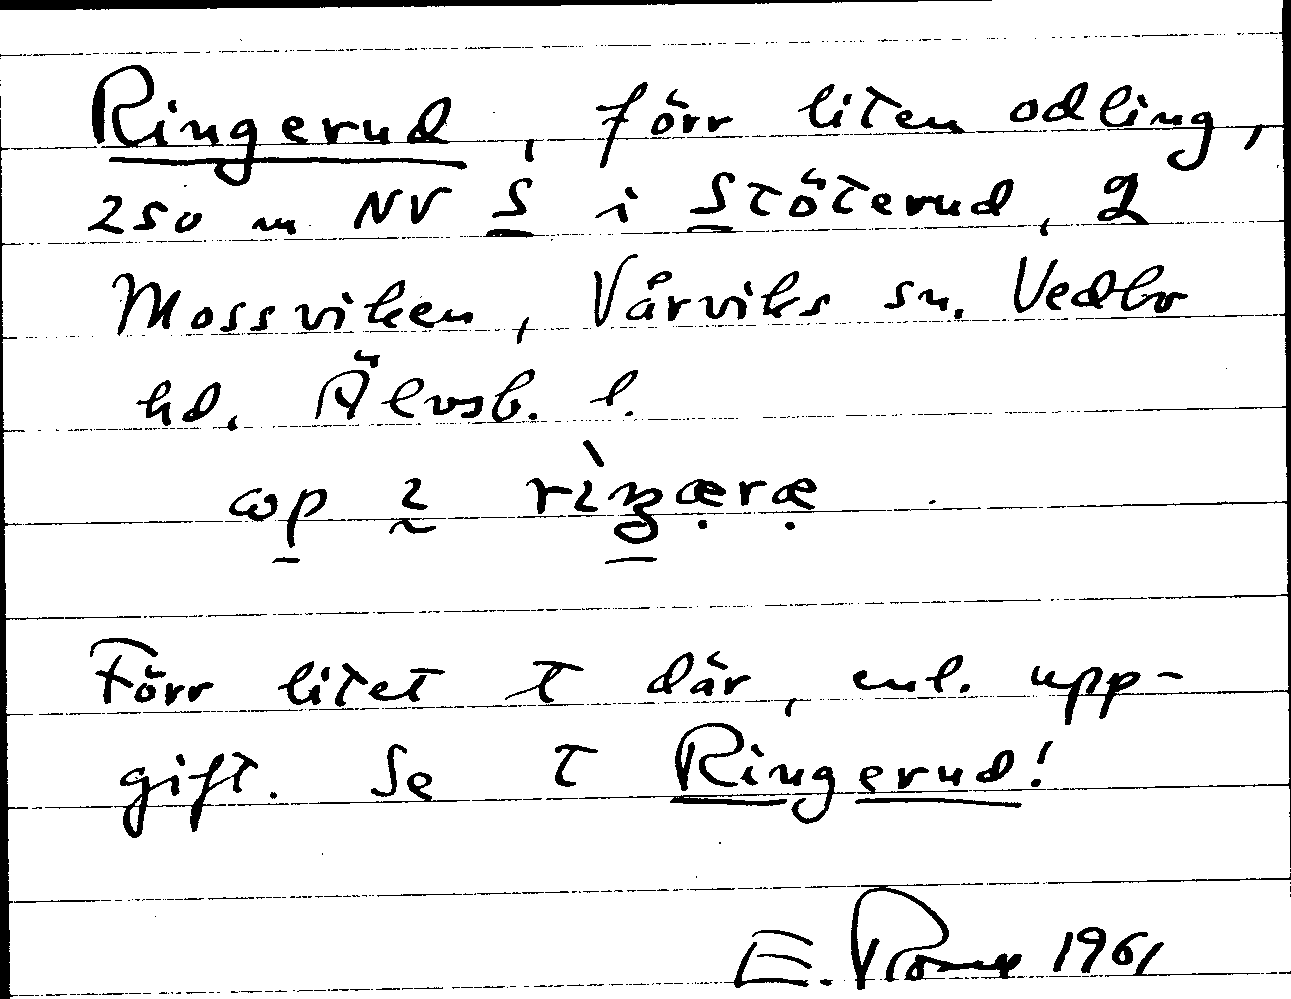 Ringerud, förr liten odling,
250 m NV S i Stöterud, g
Mossviken, Vårviks sn. Vedbo
hd. Älvsb. l.
Förr litet t där, enl. upp-
gift. Se t Ringerud!
E. 1961